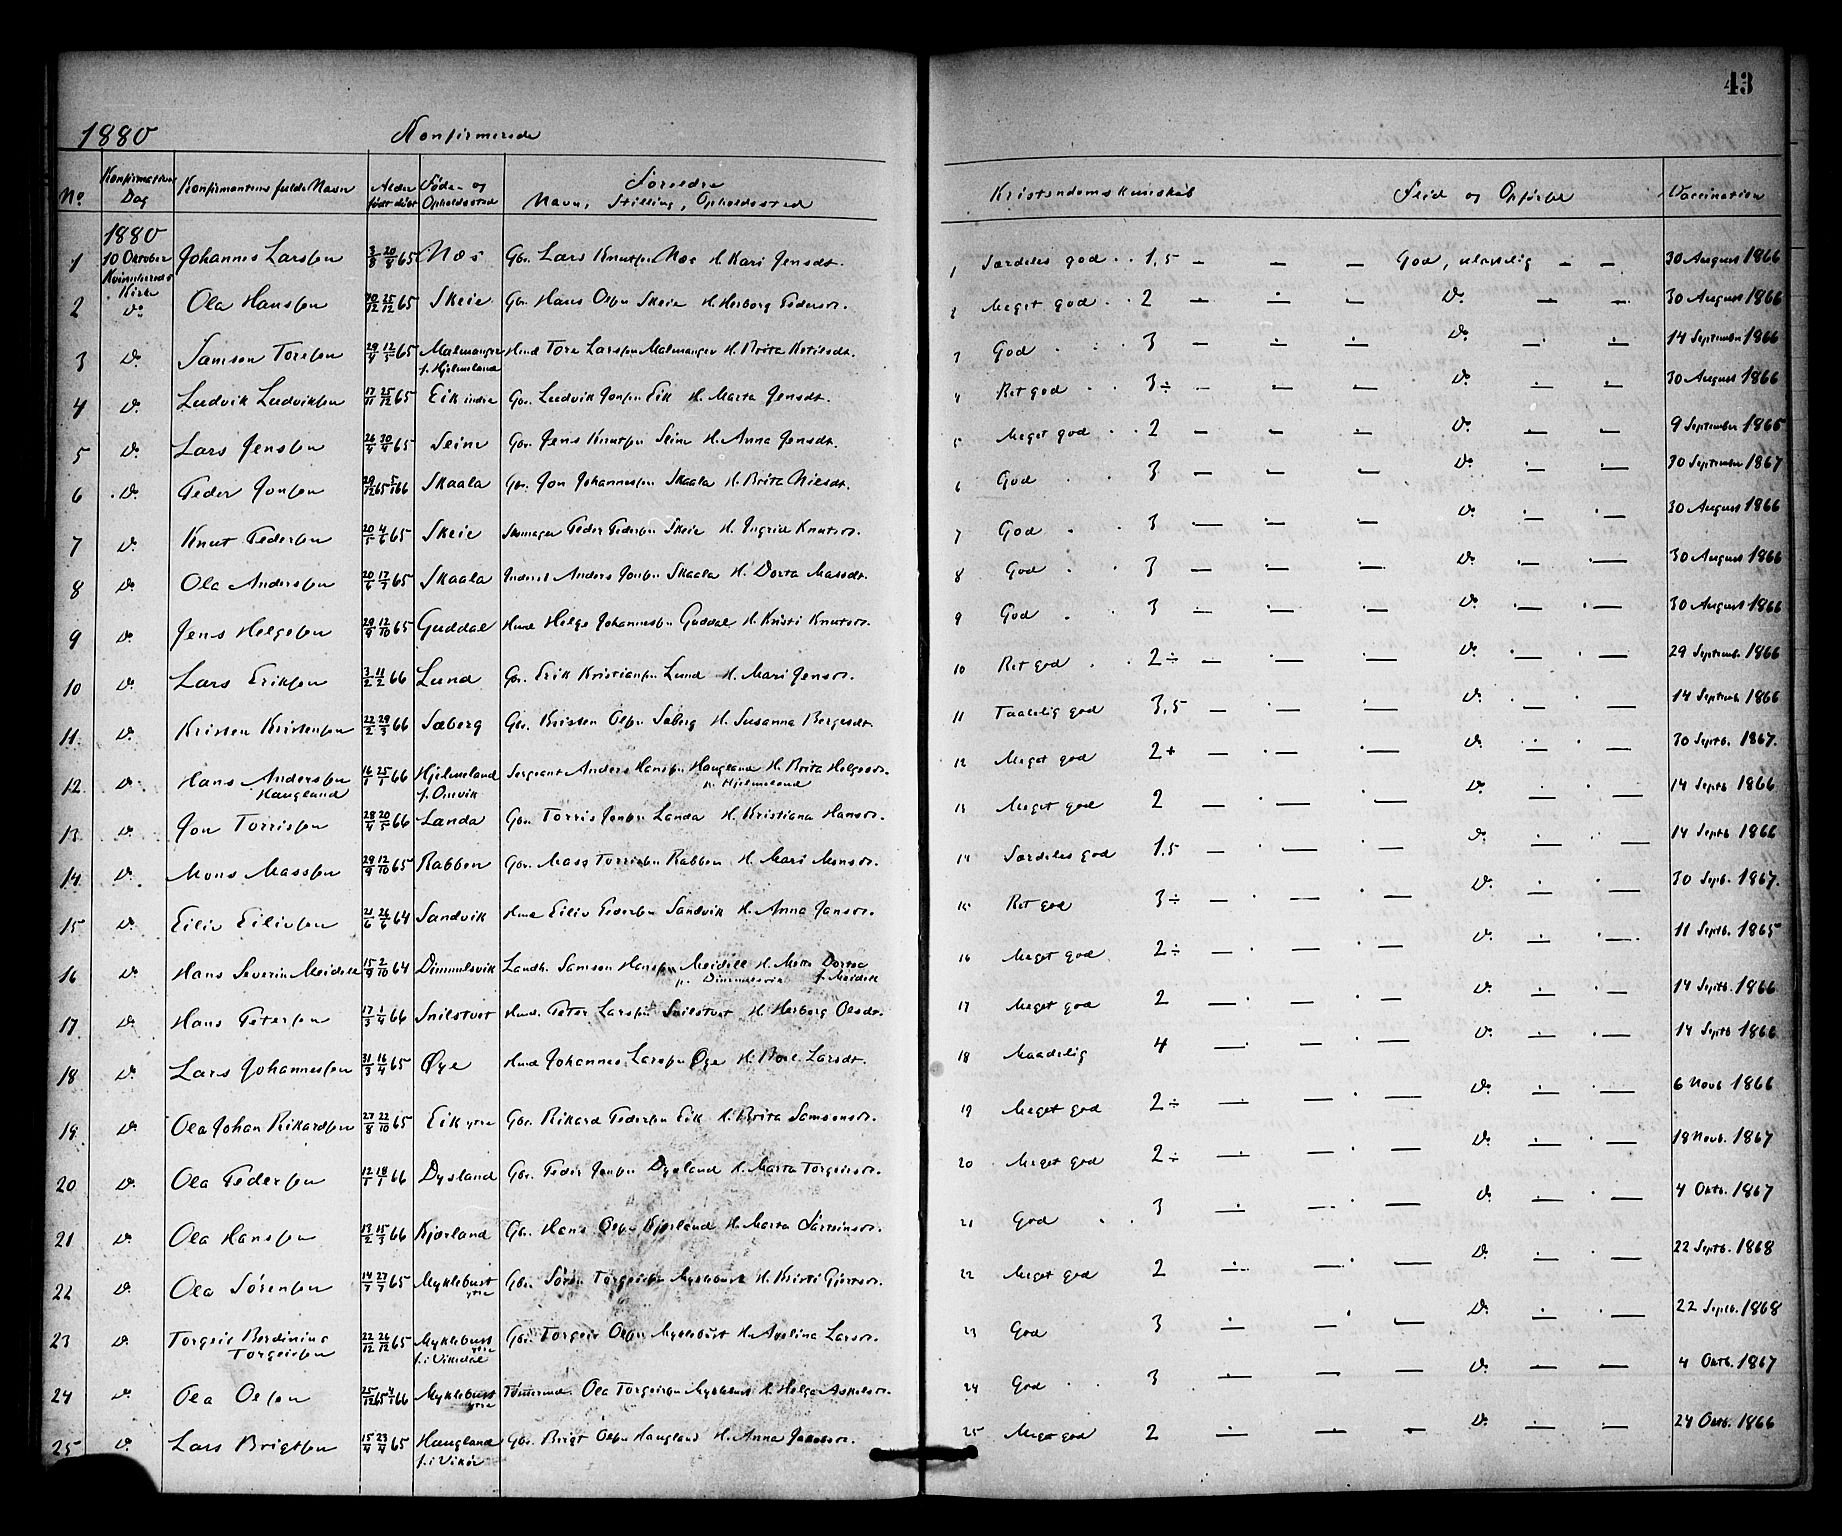 43
1880 Konfirmerede
No Konfirmations Dag Konfirmantens fulde Navn Alder født døbt Føde- og Opholdssted Forældre Navn, Stilling, Opholdssted Kristendomskundskab Flid og Opførsel Vaccination
1880
1 10 Oktober Kvinnherreds Kirke Johannes Larssøn 3/8 20/8 65 Næs Gbr. Lars Knutsøn Næs H. Kari Jensdt. 1 Særdeles god 1,5 — — — God, ulastelig — — 30 August 1866
2 do Ola Hanssøn 20/12 25/12 65 Skeie Gbr. Hans Olsøn Skeie H. Herborg Pedersdr. 2 Meget god 2 — — — do — — 30 August 1866
3 do Samson Toresøn 29/4 12/5 65 Malmanger f. Hjelmeland Hmd Tore Larssøn Malmanger H. Brita Ketilsdt. 3 God 3 — — — do — — 14 September 1866
4 do Ludvik Ludviksøn 17/11 25/12 65 Eik indre Gbr. Ludvik Jonsøn Eik H. Marta Jensdt. 4 Ret god 3÷ — — — do — — 30 August 1866
5 do Lars Jenssøn 26/4 30/4 65 Seim Gbr. Jens Knutsøn Seim H. Anna Jensdt. 5 Meget god 2 — — — do — — 9 September 1865
6 do Peder Jonsøn 29/12 65 5/1 66 Skaala Gbr. Jon Johannessøn Skaala H. Brita Nilsdt. 6 God 3 — — — do — — 30 September 1867
7 do Knut Pedersøn 20/5 4/6 65 Skeie Skomager Peder Pedersøn Skeie H. Ingrid Knutsdr. 7 God 3 — — — do — — 30 August 1866
8 do Ola Anderssøn 20/6 17/7 65 Skaala Inderst Anders Jonsøn Skaala H. Dorta Massdt. 8 God 3 — — — do — — 30 August 1866
9 do Jens Helgesøn 29/9 12/10 65 Guddal Hmd Helge Johannessøn Guddal H. Kristi Knutsdr. 9 God 3 — — — do — — 30 August 1866
10 do Lars Eriksøn 3/2 11/2 66 Lund Gbr. Erik Kristiansøn Lund H. Mari Jensdr. 10 Ret god 2÷ — — — do — — 29 Septemb. 1866
11 do Kristen Kristensøn 22/2 29/3 66 Sæberg Gbr. Kristen Olsøn Sæberg H. Susanna Bergesdt. 11 Taalelig god 3,5 — — — do — — 14 Septemb. 1866
12 do Hans Anderssøn Haugland 16/1 25/1 66 Hjelmeland f. Omvik Sergeant Anders Hanssøn Haugland p. Hjelmeland H. Brita Helgesdr. 12 Meget god 2+ — — — do — — 30 Septb. 1867.
13 do Jon Torrissøn 28/4 20/5 66 Landa Gbr. Torris Jonsøn Landa H. Kristiana Hansdr. 13 Meget god 2 — — — do — — 14 Septb 1866
14 do Mons Massøn 29/9 12/10 65 Rabben Gbr. Mass Torrissøn Rabben H. Mari Monsdr. 14 Særdeles god 1,5 — — — do — — 14 Septb 1866
15 do Eiliv Eilivsøn 21/6 26/6 64 Sandvik Hmd Eiliv Pedersøn Sandvik H. Anna Jansdr. 15 Ret god 3÷ — — — do — — 30 Septb. 1867.
16 do Hans Severin Meidell 15/9 2/10 64 Dimmelsvik Landh. Samson Hanssøn Meidell p. Dimmelsvik H. Mette Dortea f. Meidell 16 Meget god 2÷ — — — do — — 11 Septb. 1865
17 do Hans Petersøn 17/3 1/4 66 Snilstvet Hmd. Peter Larssøn Snilstvet H. Herborg Olsdt. 17 Meget god 2 — — — do — — 14 Septb. 1866
18 do Lars Johannessøn 31/3 16/4 65 Øye Hmd Johannes Larssøn Øye H. Boel Larsdt. 18 Maadelig 4 — — — do — — 14 Septb 1866
19 do Ola Johan Rikardsøn 27/8 22/10 65 Eik ytre Gbr. Rikard Pedersøn Eik H. Brita Samsonsdr. 19 Meget god 2÷ — — — do — — 6 Novb 1866
20 do Ola Pedersøn 12/1 18/1 66 Dysland Gbr. Peder Jonsøn Dysland H. Marta Torgeirsdr. 20 Meget god 2÷ — — — do — — 18 Novb. 1867
21 do Ola Hanssøn 13/2 15/3 66 Kjærland Gbr. Hans Olsøn Kjærland H. Marta Størkinsdr. 21 God 3 — — — do — — 4 Oktb. 1867
22 do Ola Sørensøn 14/7 27/7 65 Myklebust ytre Gbr. Søren Torgeirsøn Myklebust H. Kristi Gjertsdr. 22 Meget god 2 — — — do — — 22 Septb. 1868
23 do Torgeir Berdinius Torgeirsøn 22/12 26/12 65 Myklebust ytre f. i Vikedal Gbr. Torgeir Olsøn Myklebust H. Avelina Larsdr. 23 God 3 — — — do — — 22 Septb. 1868
24 do Ola Olsøn 25/12 65 4/1 66 Myklebust ytre Tømmermd. Ola Torgeirsøn Myklebust H. Helga Askelsdr. 24 God 3 — — — do — — 4 Oktb. 1867
25 do Lars Brigtsøn 15/4 23/4 65 Haugland f. i Vikør Gbr. Brigt Olsøn Haugland H. Anna Jakobsdr. 25 Meget god 2 — — — do — — 24 Oktb. 1866